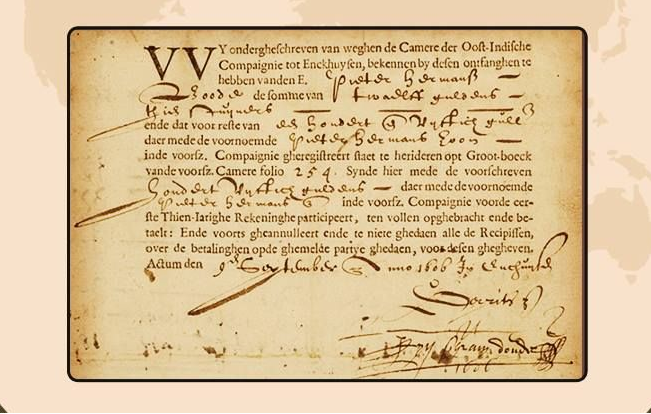 WY ondergheschreven van weghen de Camere der Oost-Indische
Compaignie tot Enckhuysen, bekennen by desen ontfanghen te
hebben vanden E. Pieter Hermansz
de somme van twaelff guldens
ende dat voor reste van
daer mede de voornoemde Pieter Hermans
inde voorsz. Compaignie gheregistreert staet te herideren opt Groot-boeck
vande voorsz. Camere folio 254. Synde hier mede de voorschreven
hondert vyftich guldens daer mede de voornoemde
Pieter Hermans inde voorsz. Compaignie voorde eer-
ste Thien-Iarighe Rekeninghe participeert, ten vollen opghebracht ende be-
taelt: Ende voorts gheannulleert ende te niere ghedaen alle de Recipissen,
over de betalinghen opde ghemelde partye ghedaen, voor desen ghegheven.
Actum den 9 September Anno 1606 In
1606